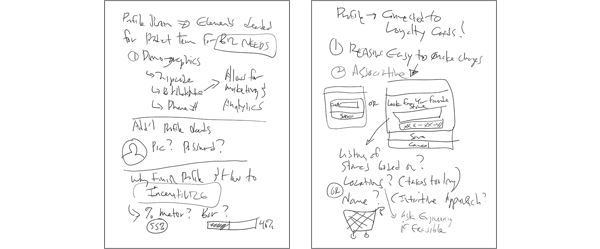 Profile Screen → Elements needed
for Product Team for BIZ NEEDS
① Demographics
↳ Zipcode
↳ Birthdate
↳ Phone #
Allows for
marketing &
Analytics
Add'l Profile needs
Pic? Password?
Why Finish Profile & How to
INCENTIVIZE
↳ % meter? Bar?
55%
40%
Profile → Connected to
Loyalty Cards!
① REASSURE Easy to make changes
② Associative
OR
Save
Look Easy Your Favorite
Store
Save
Cancel
Listing of
Stores based on?
Locations? (takes too long)
OR
Name? (Intuitive Approach?
↳ Ask Engineering
if feasible